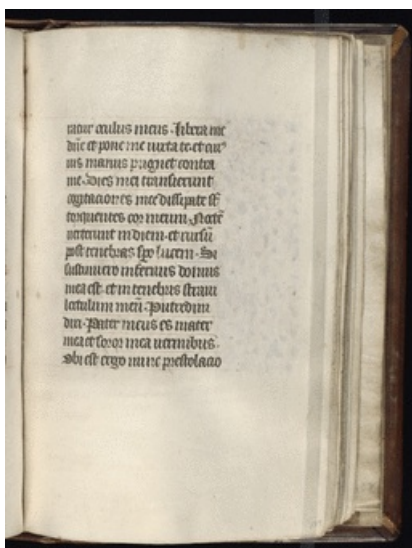 ratur oculus meus. Libera me
dñe et pone me iuxta te et cui⁹
uis manus pugnet contra
me. Dies mei transierunt
cogitaciones mee dissipate sūt
torquentes cor meum. Noctē
uerterunt in diem. et rursū
post tenebras spo lucem. Si
sustinuero infernus domus
mea est. et in tenebris straui
lectulum meū. Putredini
dixi. Pater meus es mater
mea et soror mea uermibus.
Ubi est ergo nunc prestolacio